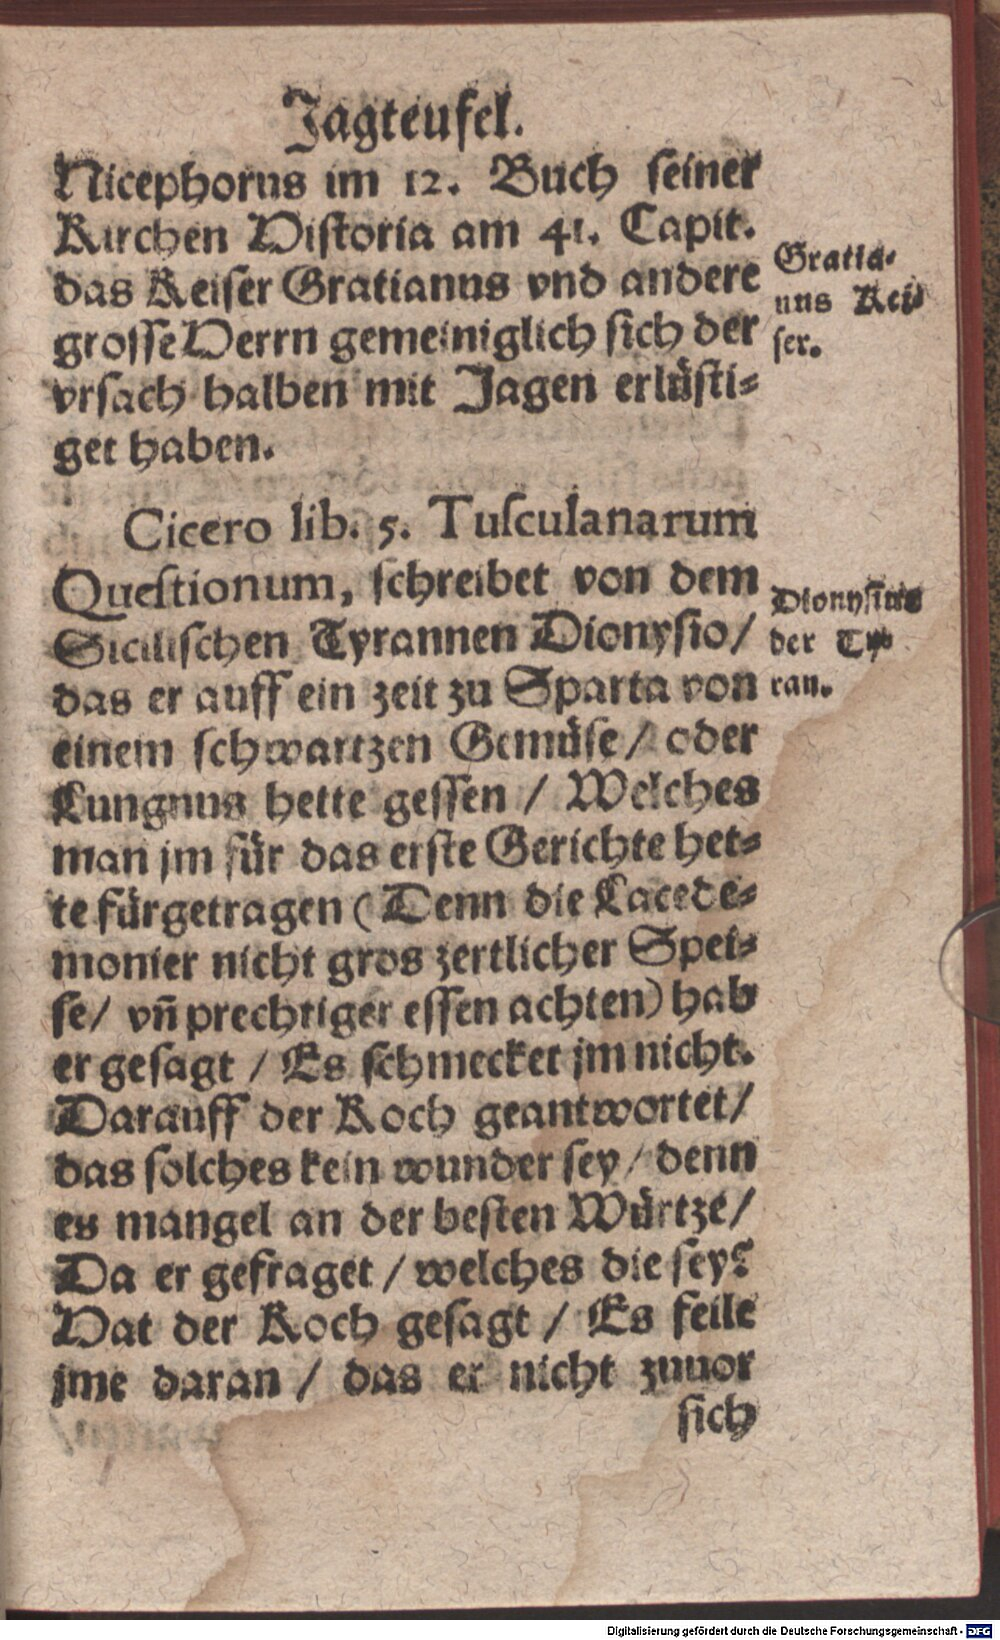 Jagteufel.
Nicephorus im 12. Buch seiner
Kirchen Historia am 41. Capit.
das Keiser Gratianus vnd andere
grosse Herrn gemeiniglich sich der
vrsach halben mit Jagen erlüsti-
get haben.
Gratia-
nus Kei-
ser.
Cicero lib. 5. Tusculanarum
Questionum, schreibet von dem
Sicilischen Tyrannen Dionysio/
das er auff ein zeit zu Sparta von
einem schwartzen Gemüse/ oder
Lungmus hette gessen / Welches
man jm für das erste Gerichte het-
te fürgetragen (Denn die Lacede-
monier nicht gros zertlicher Spei-
se/ vñ prechtiger essen achten) hab
er gesagt / Es schmecket jm nicht.
Darauff der Koch geantwortet/
das solches kein wunder sey/ denn
es mangel an der besten Würtze/
Da er gefraget / welches die sey?
Hat der Koch gesagt / Es feile
jme daran / das er nicht zuuor
sich
Dionysius
der Ty-
ran.
Digitalisierung gefördert durch die Deutsche Forschungsgemeinschaft - DFG